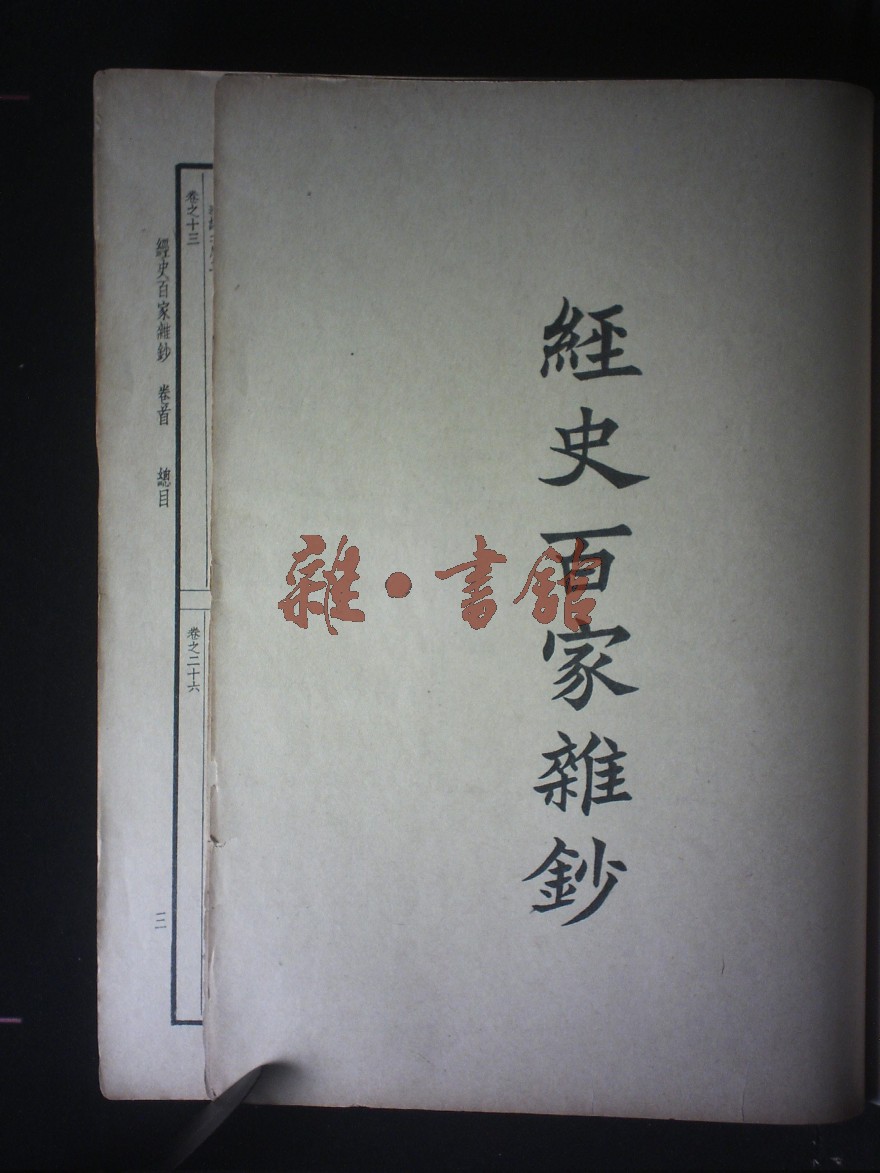 經史百家雜鈔
雜·書館
卷之十三
卷之二十六
經史百家雜鈔 卷首 總目 三